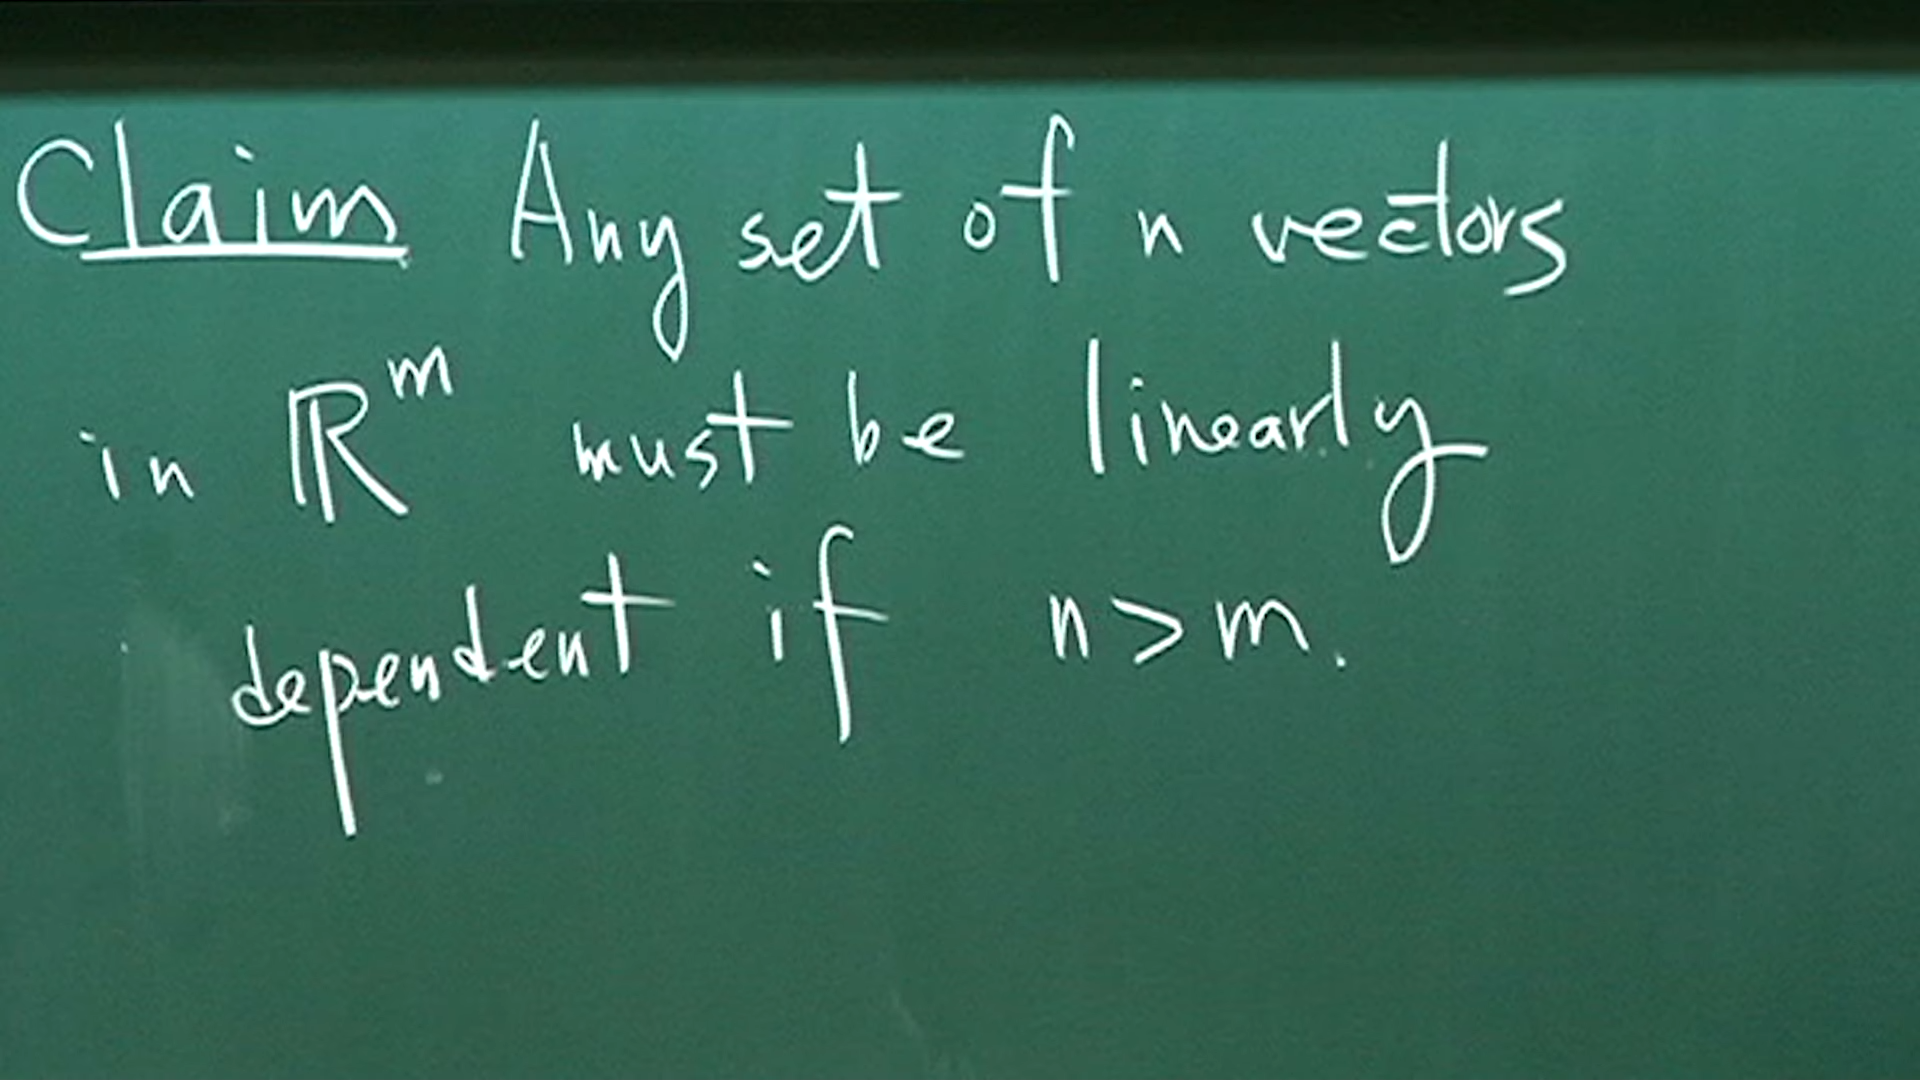 Claim Any set of n vectors
in ℝᵐ must be linearly
dependent if n>m.